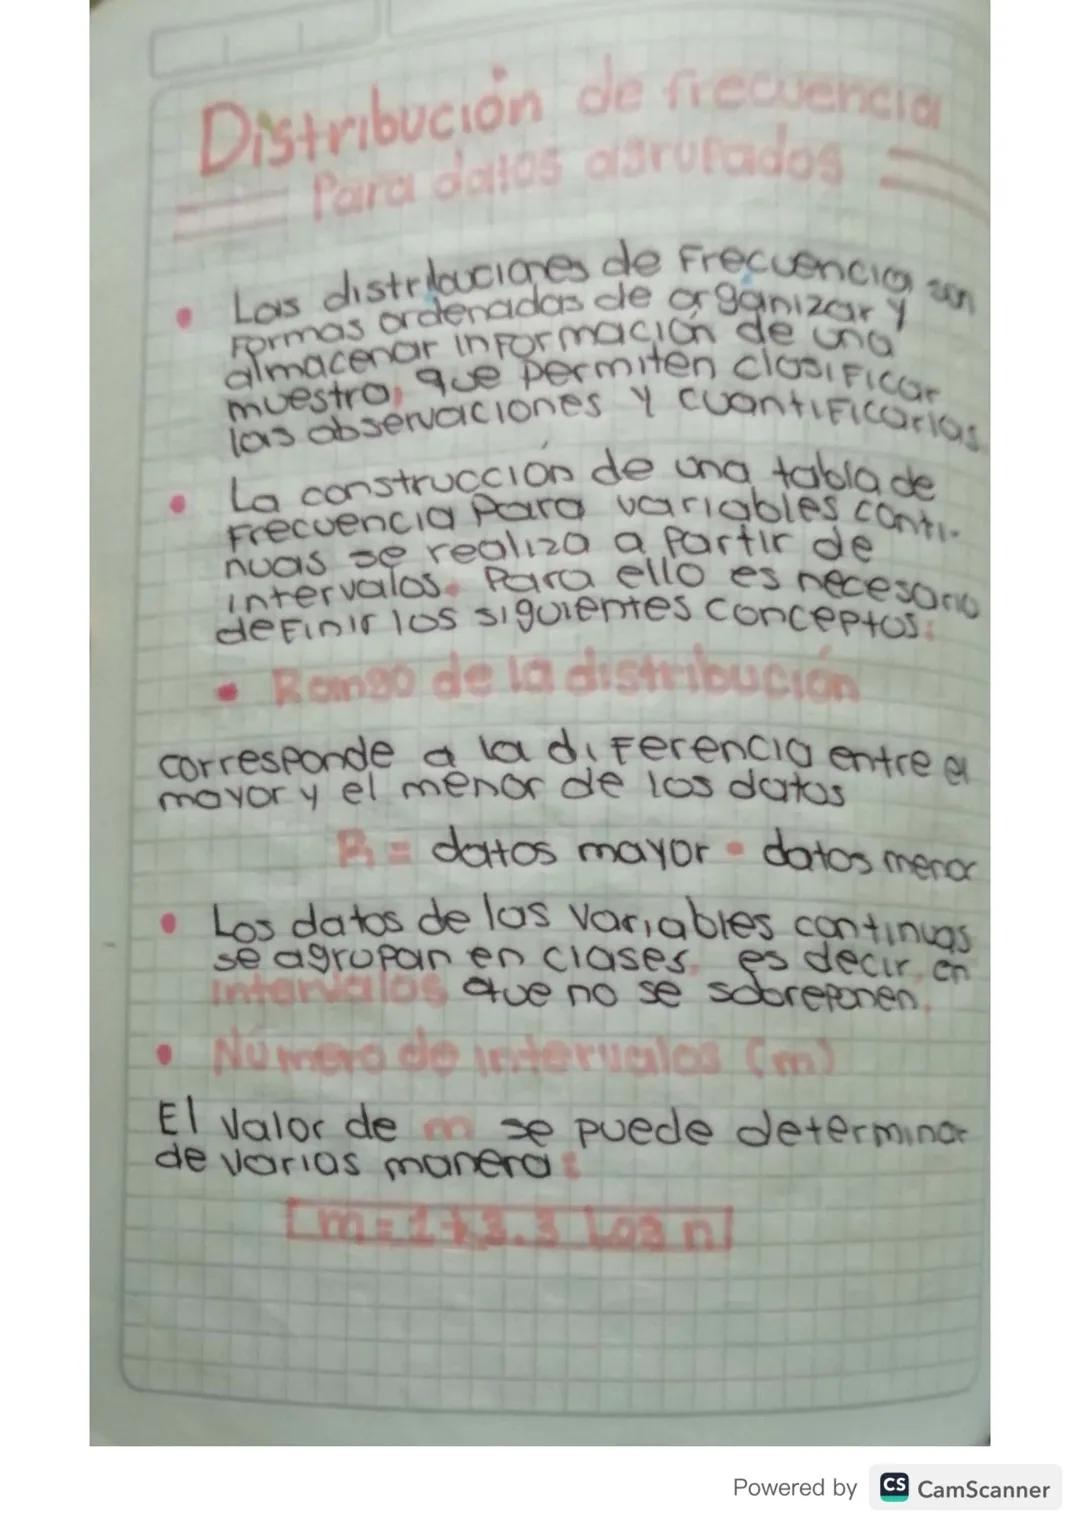 Distribución de frecuencia
Para datos agrupados
• Las distribuciones de Frecuencia son
Formas ordenadas de organizar y
almacenar inFormación de una
muestra, que permiten clasiFicar
las observaciones y cuantiFicarlas
• La construcción de una tabla de
Frecuencia Para variables conti-
nuas se realiza a partir de
intervalos. Para ello es necesario
deFinir los siguientes conceptos:
• Rango de la distribución
corresponde a la diFerencia entre el
mayor y el menor de los datos
R = datos mayor - datos menor
• Los datos de las variables continuas
se agrupan en clases, es decir, en
intervalos que no se sobreponen.
• Número de intervalos (m)
El valor de m se puede determinar
de varias manera:
m = 1 + 3.3 Log n
Powered by CS CamScanner